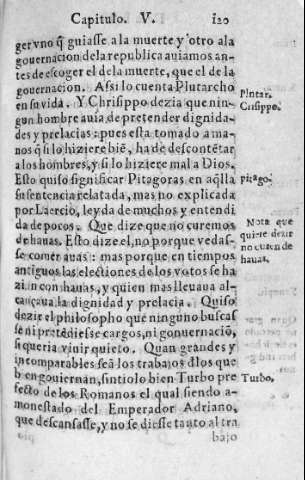 Capitulo. V. 120
geruno q̃ guiasse a la muerte y otro ala
gouernacion dela republica auiamos an-
tes de escoger el de la muerte, que el de la
gouernacion. Assi lo cuenta Plutarcho
en su vida. Y Chrisippo dezia que nin-
gun hombre auia de pretender dignida-
des y prelacias: pues esta tomado a ma-
nos q̃ si lo hiziere biẽ, ha de descõtẽtar
a los hombres, y si lo hiziere mal a Dios.
Esto quiso significar Pitagoras en aq̃lla
su sentencia relatada, mas no explicada
por Laercio, leyda de muchos y entendi
da de pocos. Que dize que no curemos
de hauas. Esto dize el, no porque vedas-
se comer auas: mas porque en tiempos
antiguos las electiones de los votos se ha
zian con hauas, y quien mas lleuaua al-
cançaua la dignidad y prelacia. Quiso
dezir el philosopho que ninguno buscas
se ni pretẽdiesse cargos, ni gouernaciõ,
si queria viuir quieto. Quan grandes y
incomparables seã los trabajos d̃los que
bien gouiernan, sintiolo bien Turbo pre
fecto de los Romanos el qual siendo a-
monestado del Emperador Adriano,
que descansasse, y no se diesse tanto al tra
bajo
Plutar.
Crisippo.
pitago.
Nota que
quiere dezir
no curen de
hauas.
Turbo.